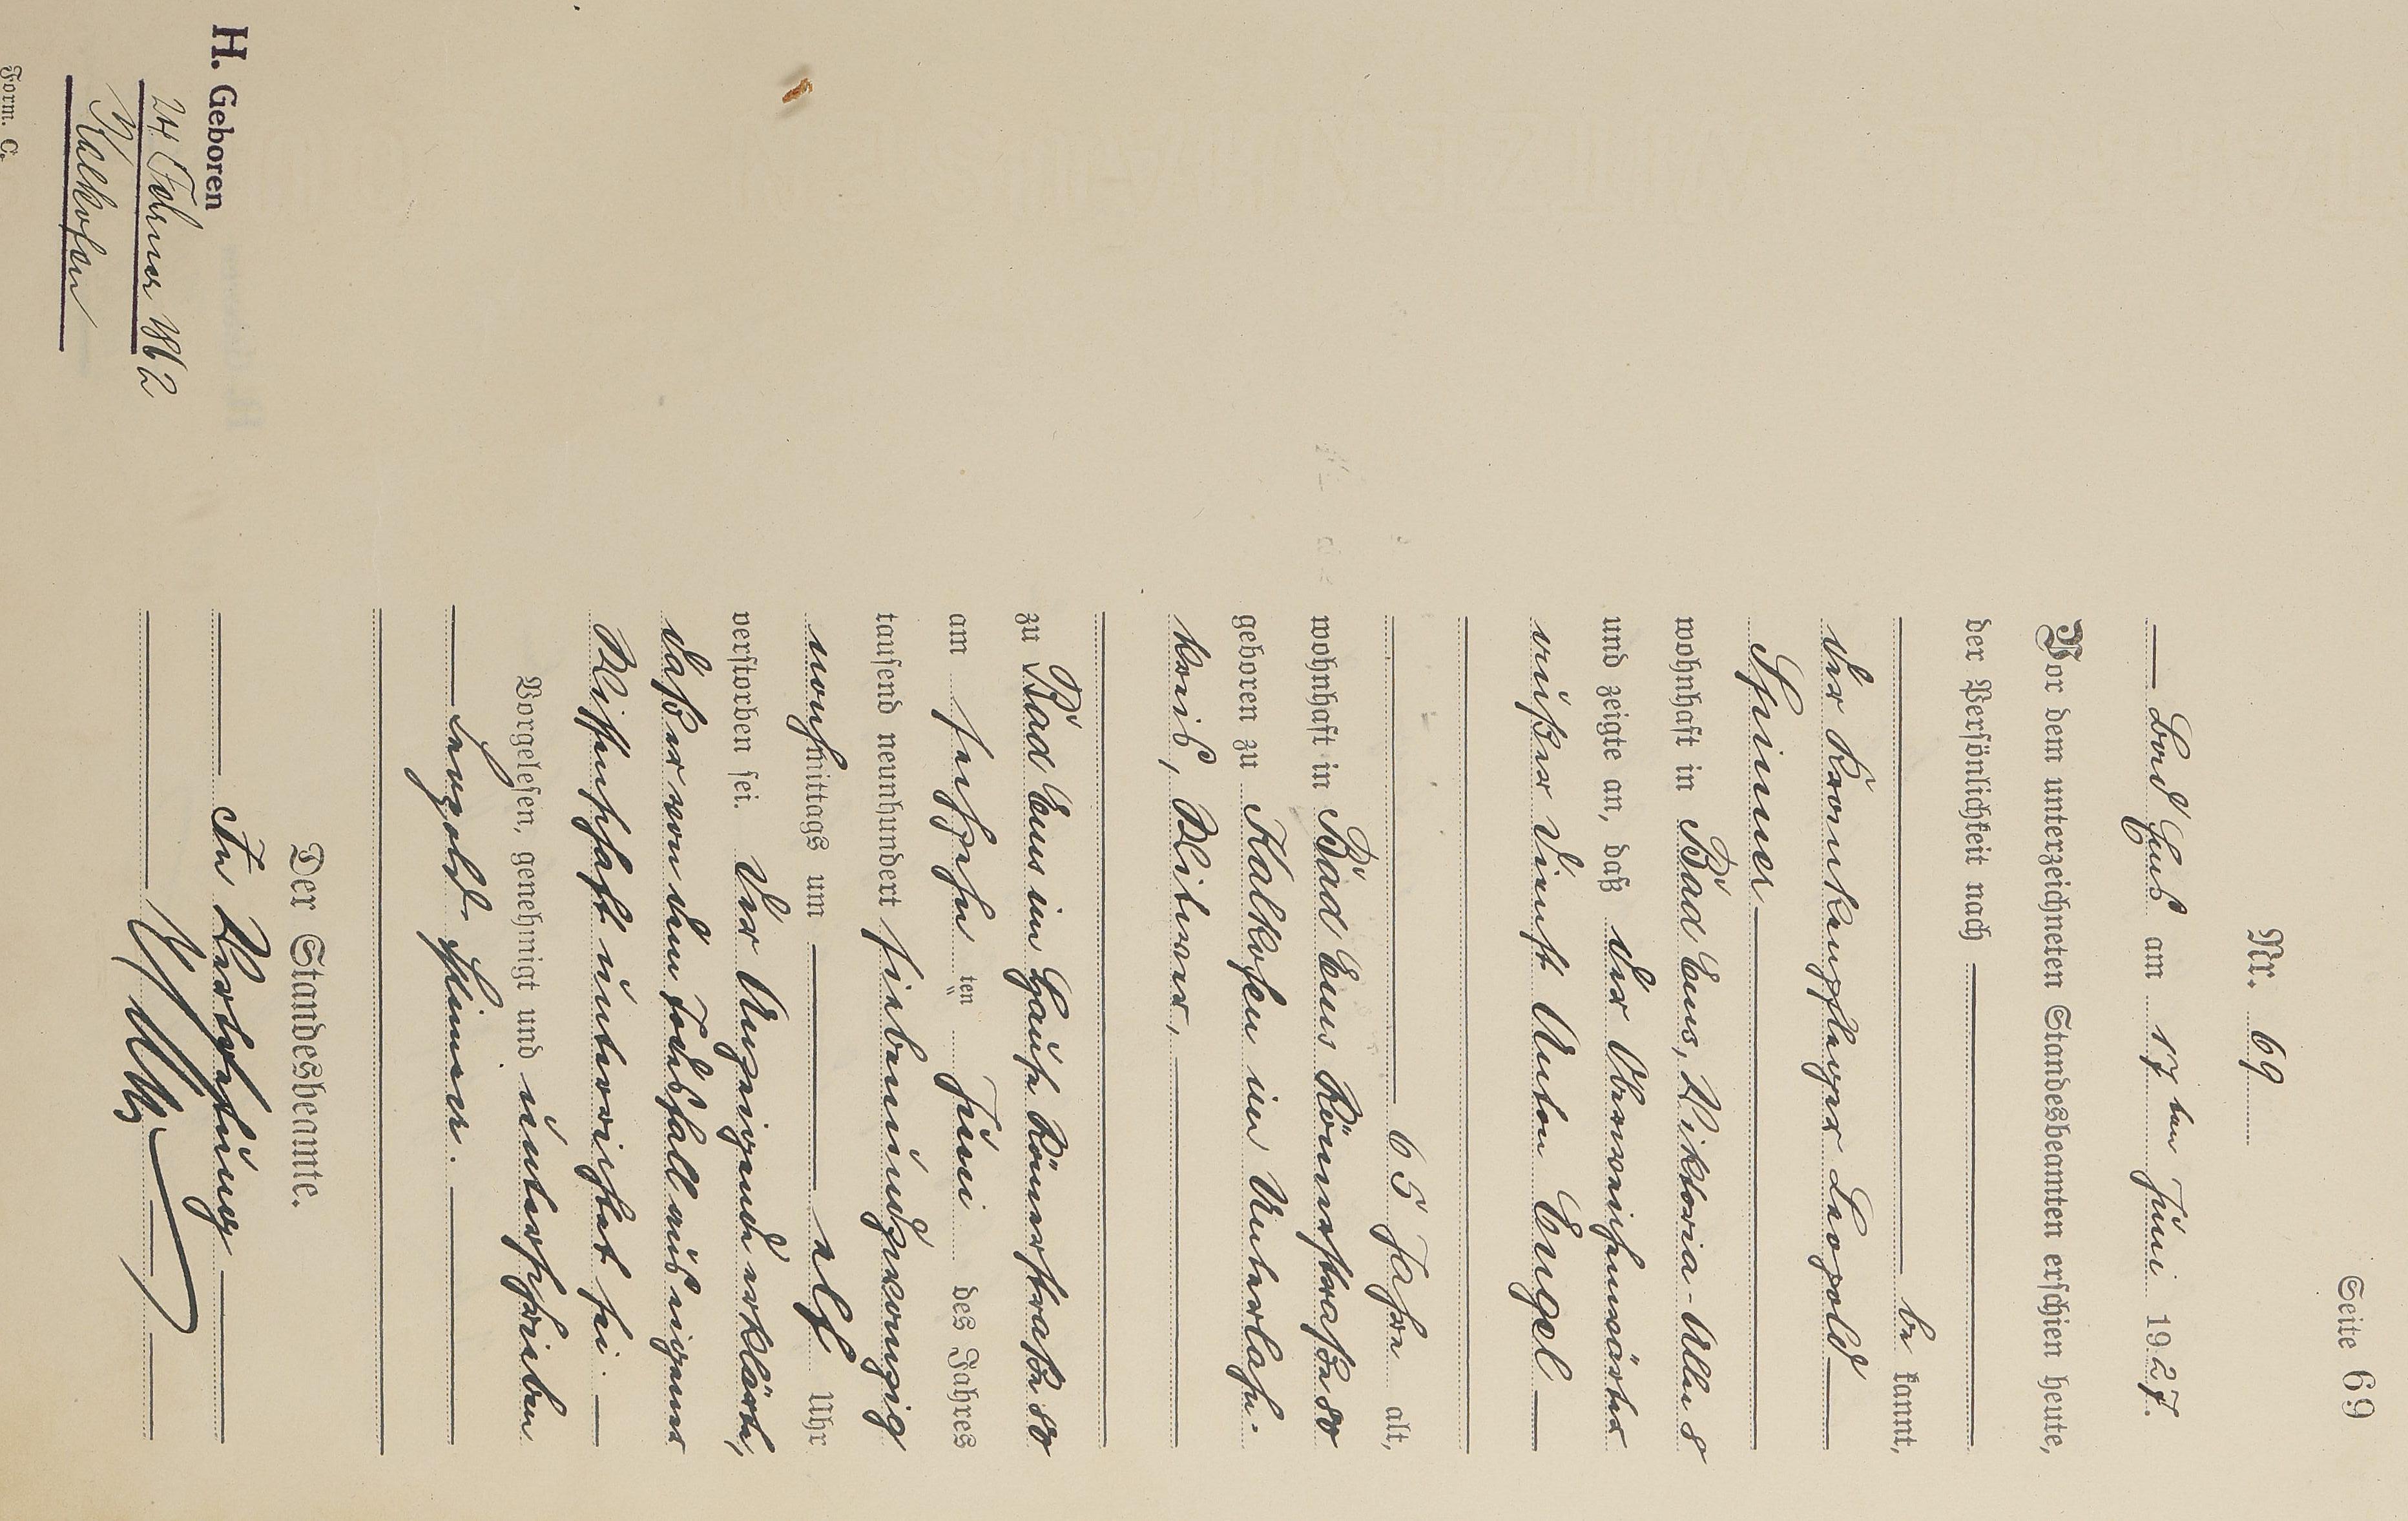 Seite 69
Nr. 69
Bad Ems am 17ten Juni 1927.
Vor dem unterzeichneten Standesbeamten erschien heute,
der Persönlichkeit nach
be kannt,
der Krankenpfleger Leopold
Spinner
wohnhaft in Bad Ems, Viktoria-Allee 8
und zeigte an, daß der Oberweichenwärter
außer Dienst Anton Engel
65 Jahre alt,
wohnhaft in Bad Ems Römerstraße 80
geboren zu Kalkofen im Unterlahn-
kreis, Witwer,
zu Bad Ems im Hause Römerstraße 80
am sechzehn ten Juni des Jahres
tausend neunhundert siebenundzwanzig
nachmittags um elf Uhr
verstorben sei. Der Anzeigende erklärte,
daß er von dem Todesfall aus eigener
Wissenschaft unterrichtet sei.
Vorgelesen, genehmigt und unterschrieben
Leopold Spinner.
Der Standesbeamte.
In Vertretung
H. Geboren
24 Februar 1862
Kalkofen
Form. C.